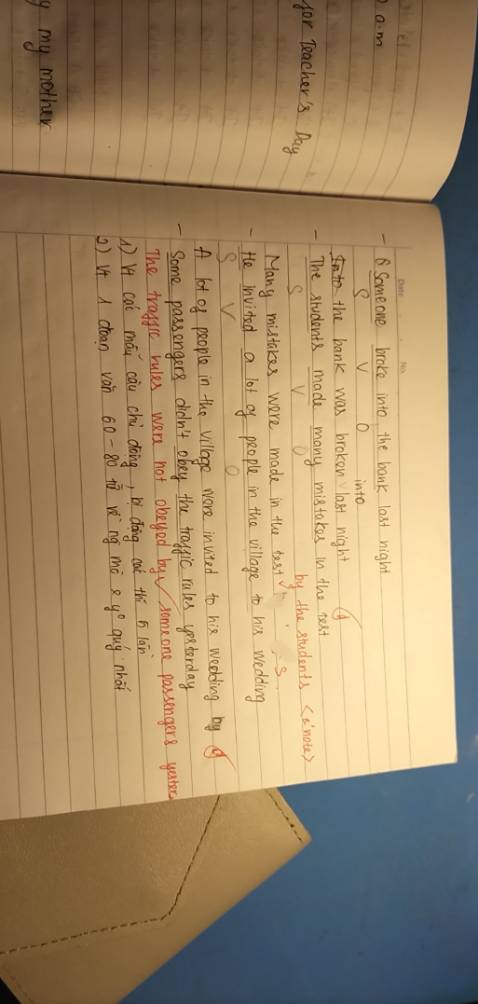 a.m
for Teacher's Day
y my mother
Date No.
- 6 Someone broke into the bank last night
S V O
into
Into the bank was broken last night
- The students made many mistakes in the test
S V O by the students <s' note>
Many mistakes were made in the test
- He invited a lot of people in the village to his wedding
S V O
A lot of people in the village were invited to his wedding by
- Some passengers didn't obey the traffic rules yesterday
The traffic rules were not obeyed by someone passengers yester
1) Vt các mẫu câu chủ động, bị động các thì 5 lần
2) Vt 1 đoạn văn 60 - 80 từ về ng mà e yº quý nhất